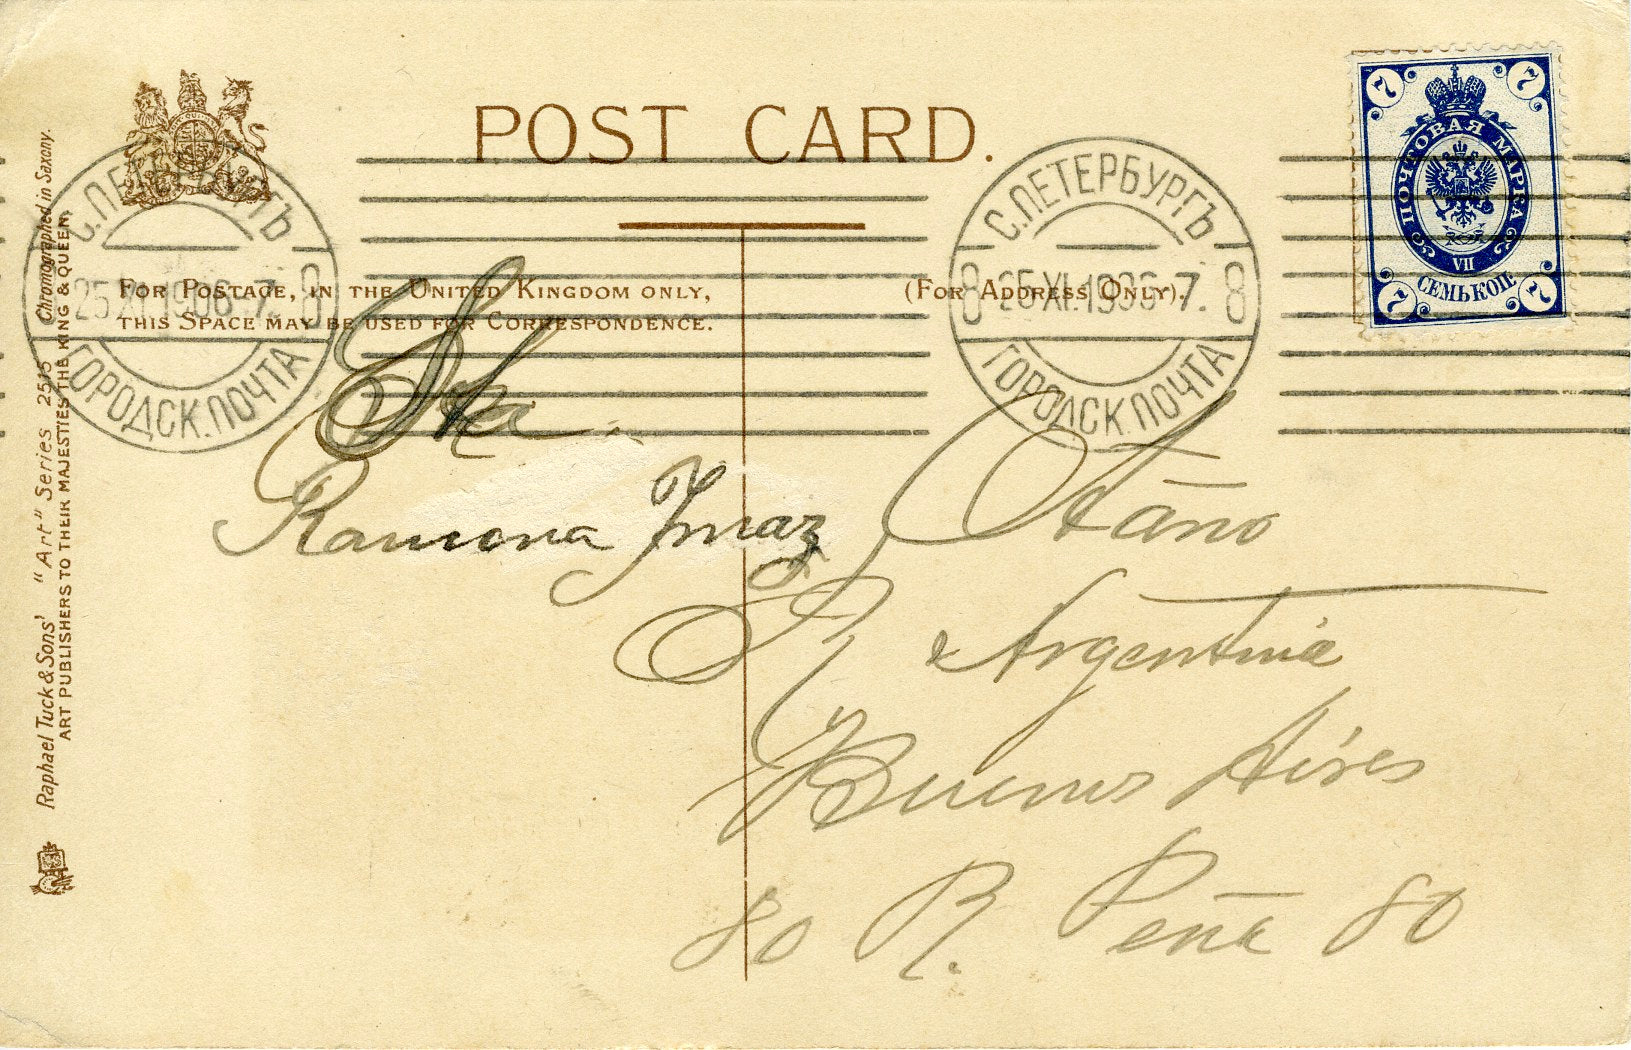 POST CARD.
FOR POSTAGE, IN THE UNITED KINGDOM ONLY,
THIS SPACE MAY BE USED FOR CORRESPONDENCE.
(FOR ADDRESS ONLY).
Raphael Tuck & Sons' "Art" Series 2515 Chromographed in Saxony.
ART PUBLISHERS TO THEIR MAJESTIES THE KING & QUEEN.
С.ПЕТЕРБУРГЪ
8 25.XI.1906-7. 8
ГОРОДСК.ПОЧТА
С.ПЕТЕРБУРГЪ
8 25.XI.1906-7. 8
ГОРОДСК.ПОЧТА
7 7
ПОЧТОВАЯ МАРКА
VII
СЕМЬ КОП.
7 7
Sra
Ramona Ymaz Otāno
R Argentina
Buenos Aires
80 R. Peña 80